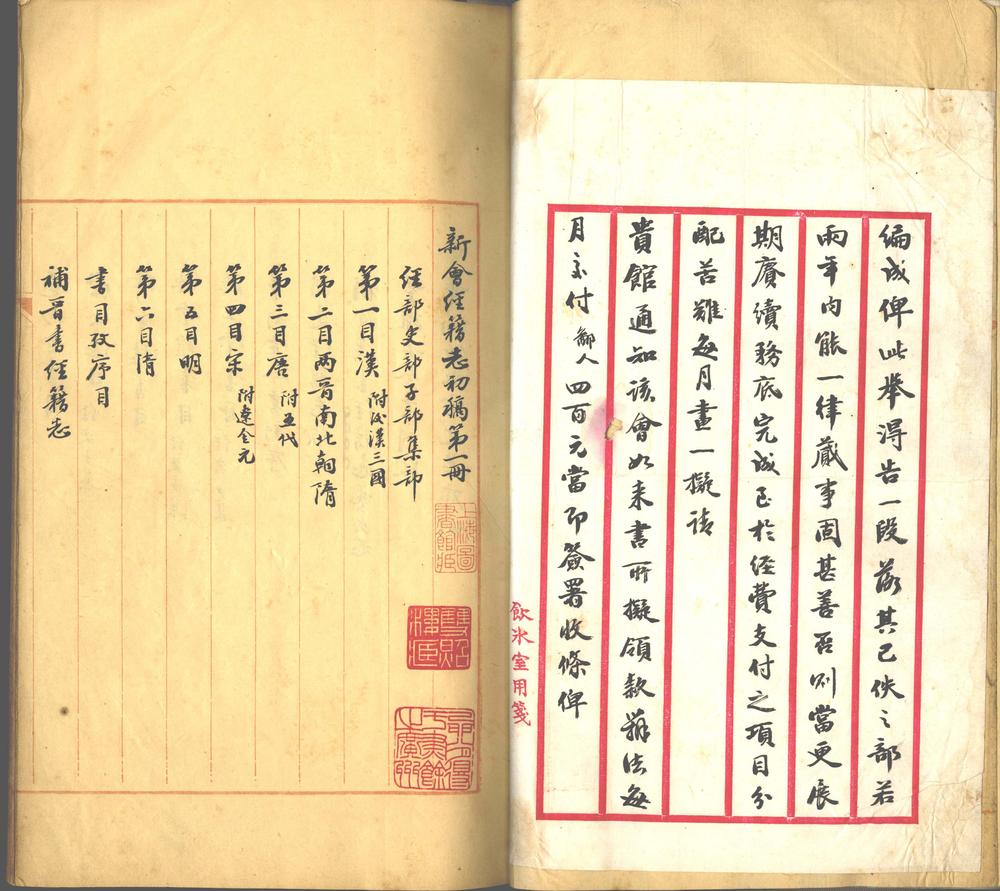 編成俾此舉得告一段落其已佚之部若
兩年內能一律蕆事固甚善否則當更展
期賡續務底完成已於經費支付之項目分
配苦難每月畫一擬請
貴館通知該會如來書所擬領款辦法每
月交付鄙人四百元當即簽署收條俾
飲冰室用箋
新會經籍志初稿第一冊
經部史部子部集部
第一目漢附後漢三國
第二目兩晉南北朝隋
第三目唐附五代
第四目宋附遼金元
第五目明
第六目隋
書目攷序目
補晉書經籍志
上海圖書館臧